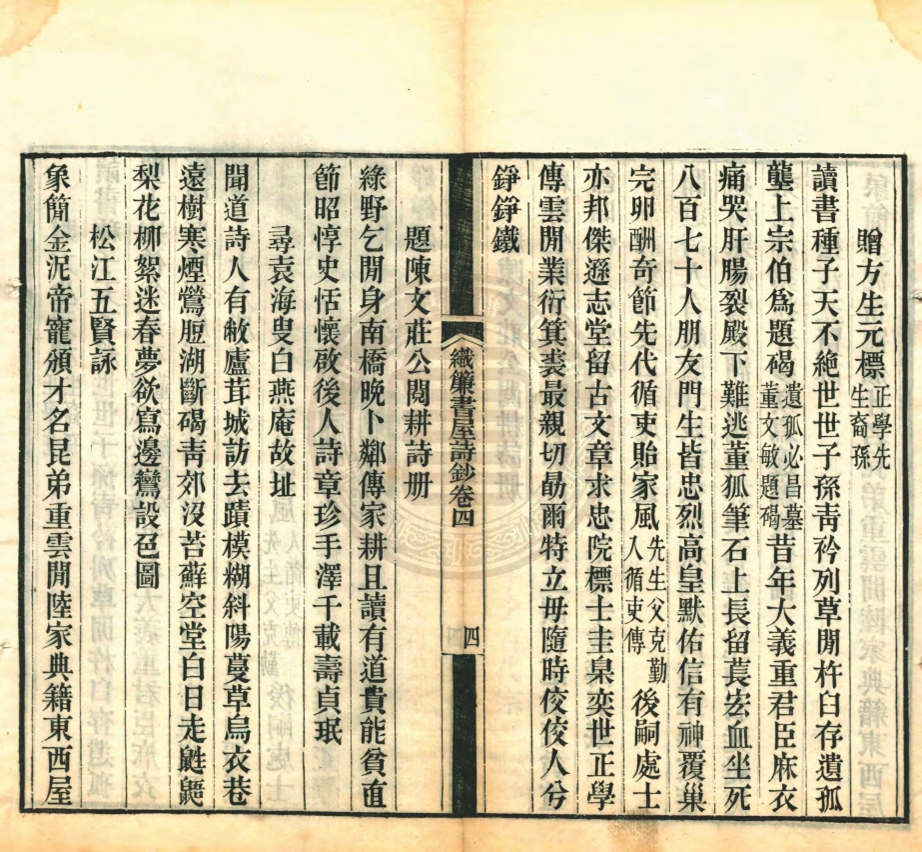 贈方生元標正學先生裔孫
讀書種子天不絕世世子孫靑衿列草閒杵臼存遺孤
壟上宗伯爲題碣遺孤必昌墓董文敏題碣昔年大義重君臣麻衣
痛哭肝腸裂殿下難逃董狐筆石上長留萇宏血坐死
八百七十人朋友門生皆忠烈高皇默佑信有神覆巢
完卵酬奇節先代循吏貽家風先生父克勤入循吏傳後嗣處士
亦邦傑遜志堂留古文章求忠院標士圭臬奕世正學
傳雲閒業衍箕裘最親切勗爾特立毋隨時佼佼人兮
錚錚鐵
題陳文莊公閱耕詩册
綠野乞閒身南橋晚卜鄰傳家耕且讀有道貴能貧直
節昭惇史恬懷啟後人詩章珍手澤千載壽貞珉
尋袁海叟白燕庵故址
聞道詩人有敝廬茸城訪去蹟模糊斜陽蔓草烏衣巷
遠樹寒煙鶯脰湖斷碣靑郊沒苔蘚空堂白日走鼪鼯
梨花柳絮迷春夢欲寫邊鸞設色圖
松江五賢詠
象簡金泥帝寵頒才名昆弟重雲閒陸家典籍東西屋
織簾書屋詩鈔卷四
四